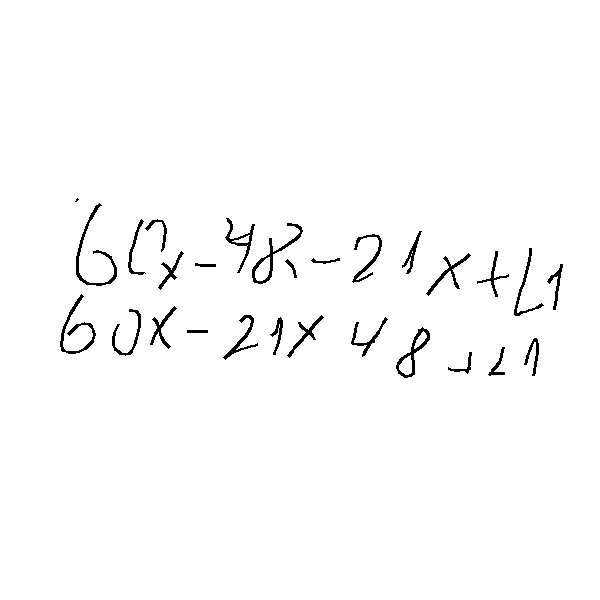 60x-48-21x+21
60x-21x 48+21